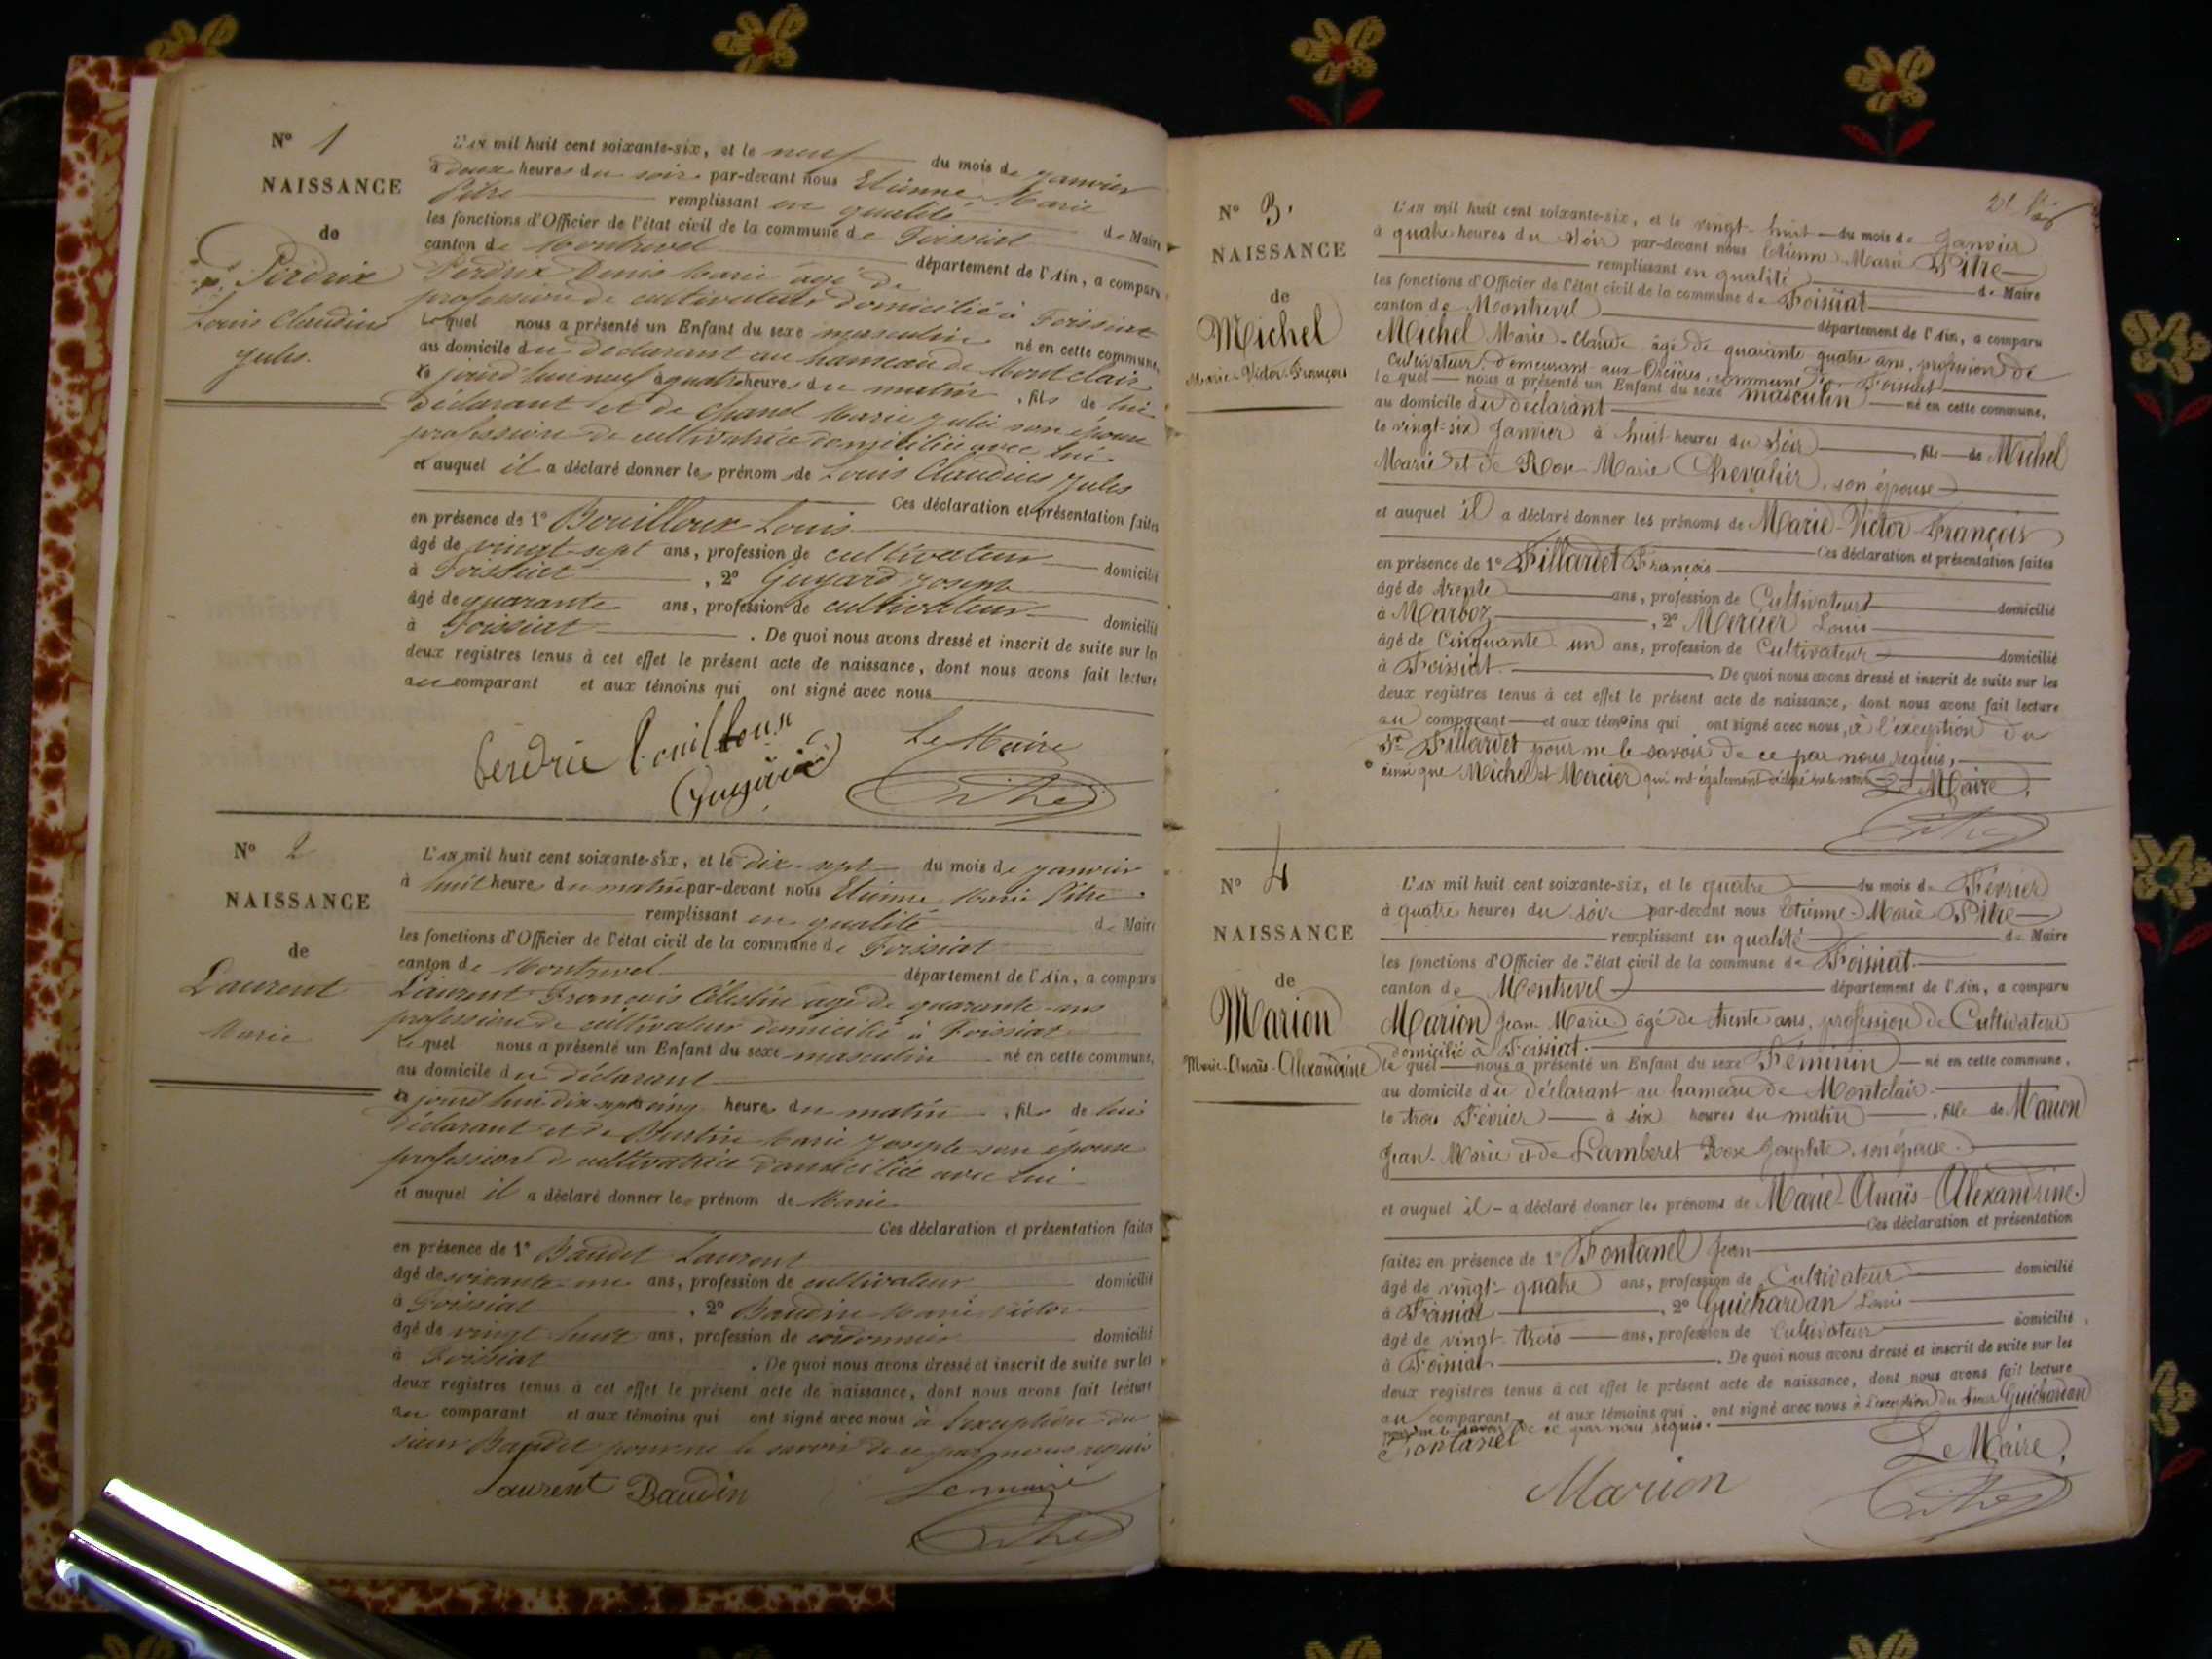 Nº 1
NAISSANCE
de
Perdrix
Louis Claudius
Jules.
L'AN mil huit cent soixante-six, et le neuf du mois de janvier
à deux heures du soir par-devant nous Etienne Marie
Pitre remplissant en qualité de Maire
les fonctions d'Officier de l'état civil de la commune de Foissiat
canton de Montrevel département de l'Ain, a comparu
Perdrix Denis Marie âgé de
profession de cultivateur domicilié à Foissiat
Lequel nous a présenté un Enfant du sexe masculin né en cette commune,
au domicile du déclarant au hameau de Montclair
ce jourd'hui neuf à quatre heures du matin, fils de lui
déclarant et de Chanel Marie Julie son épouse
profession de cultivatrice domiciliée avec lui
et auquel il a déclaré donner les prénom de Louis Claudius Jules
Ces déclaration et présentation faites
en présence de 1º Bouilloux Louis
âgé de vingt-sept ans, profession de cultivateur domicilié
à Foissiat, 2º Guyard Joseph
âgé de quarante ans, profession de cultivateur domicilié
à Foissiat. De quoi nous avons dressé et inscrit de suite sur les
deux registres tenus à cet effet le présent acte de naissance, dont nous avons fait lecture
au comparant et aux témoins qui ont signé avec nous
Perdrix Bouilloux Le Maire
Pitre
Nº 2
NAISSANCE
de
Laurent
Marie
L'AN mil huit cent soixante-six, et le dix-sept du mois de janvier
à huit heures du matin par-devant nous Etienne Marie Pitre
remplissant en qualité de Maire
les fonctions d'Officier de l'état civil de la commune de Foissiat
canton de Montrevel département de l'Ain, a comparu
Laurent François Célestin âgé de quarante ans
profession de cultivateur domicilié à Foissiat
Lequel nous a présenté un Enfant du sexe masculin né en cette commune,
au domicile du déclarant
ce jourd'hui dix-sept à cinq heures du matin, fils de lui
déclarant et de Burtin Marie Josephe son épouse
profession de cultivatrice domiciliée avec lui
et auquel il a déclaré donner le prénom de Marie
Ces déclaration et présentation faites
en présence de 1º Baudet Laurent
âgé de soixante-un ans, profession de cultivateur domicilié
à Foissiat, 2º Baudin Marie Victor
âgé de vingt ans, profession de cordonnier domicilié
à Foissiat. De quoi nous avons dressé et inscrit de suite sur les
deux registres tenus à cet effet le présent acte de naissance, dont nous avons fait lecture
au comparant et aux témoins qui ont signé avec nous à l'exception du
sieur Baudet pour ne le savoir de ce par nous requis
Laurent Baudin Le maire
Pitre
Nº 3.
NAISSANCE
de
Michel
Marie-Victor-François
L'AN mil huit cent soixante-six, et le vingt-huit du mois de Janvier
à quatre heures du soir par-devant nous Etienne Marie Pitre
remplissant en qualité de Maire
les fonctions d'Officier de l'état civil de la commune de Foissiat
canton de Montrevel département de l'Ain, a comparu
Michel Marie-Claude âgé de quarante quatre ans, profession de
cultivateur, demeurant aux Orcières, commune de Foissiat
lequel nous a présenté un Enfant du sexe masculin né en cette commune,
au domicile du déclarant
le vingt-six Janvier à huit heures du soir, fils de Michel
Marie et de Rose Marie Chevalier, son épouse
et auquel il a déclaré donner les prénoms de Marie-Victor-François
Ces déclaration et présentation faites
en présence de 1º Fillardet François
âgé de trente ans, profession de Cultivateur domicilié
à Marboz, 2º Mercier Louis
âgé de Cinquante un ans, profession de Cultivateur domicilié
à Foissiat. De quoi nous avons dressé et inscrit de suite sur les
deux registres tenus à cet effet le présent acte de naissance, dont nous avons fait lecture
au comparant et aux témoins qui ont signé avec nous, à l'exception du
Sr Fillardet pour ne le savoir de ce par nous requis,
ainsi que Michel et Mercier qui ont également Le Maire,
Pitre
Nº 4
NAISSANCE
de
Marion
Marie-Anaïs-Alexandrine
L'AN mil huit cent soixante-six, et le quatre du mois de Février
à quatre heures du soir par-devant nous Etienne-Marie Pitre
remplissant en qualité de Maire
les fonctions d'Officier de l'état civil de la commune de Foissiat.
canton de Montrevel département de l'Ain, a comparu
Marion Jean-Marie âgé de trente ans, profession de Cultivateur
domicilié à Foissiat.
lequel nous a présenté un Enfant du sexe Féminin né en cette commune,
au domicile du déclarant au hameau de Montclair
le trois Février à six heures du matin, fille de Marion
Jean-Marie et de Lamberet Rose Josephte, son épouse.
et auquel il a déclaré donner les prénoms de Marie-Anaïs-Alexandrine.
Ces déclaration et présentation
faites en présence de 1º Fontanel Jean
âgé de vingt-quatre ans, profession de Cultivateur domicilié
à Foissiat, 2º Guichardan Louis
âgé de vingt-trois ans, profession de Cultivateur domicilié
à Foissiat. De quoi nous avons dressé et inscrit de suite sur les
deux registres tenus à cet effet le présent acte de naissance, dont nous avons fait lecture
au comparant et aux témoins qui ont signé avec nous à l'exception du sieur Guichardan
pour ne le savoir de ce par nous requis.
Fontanel Le Maire,
Marion Pitre